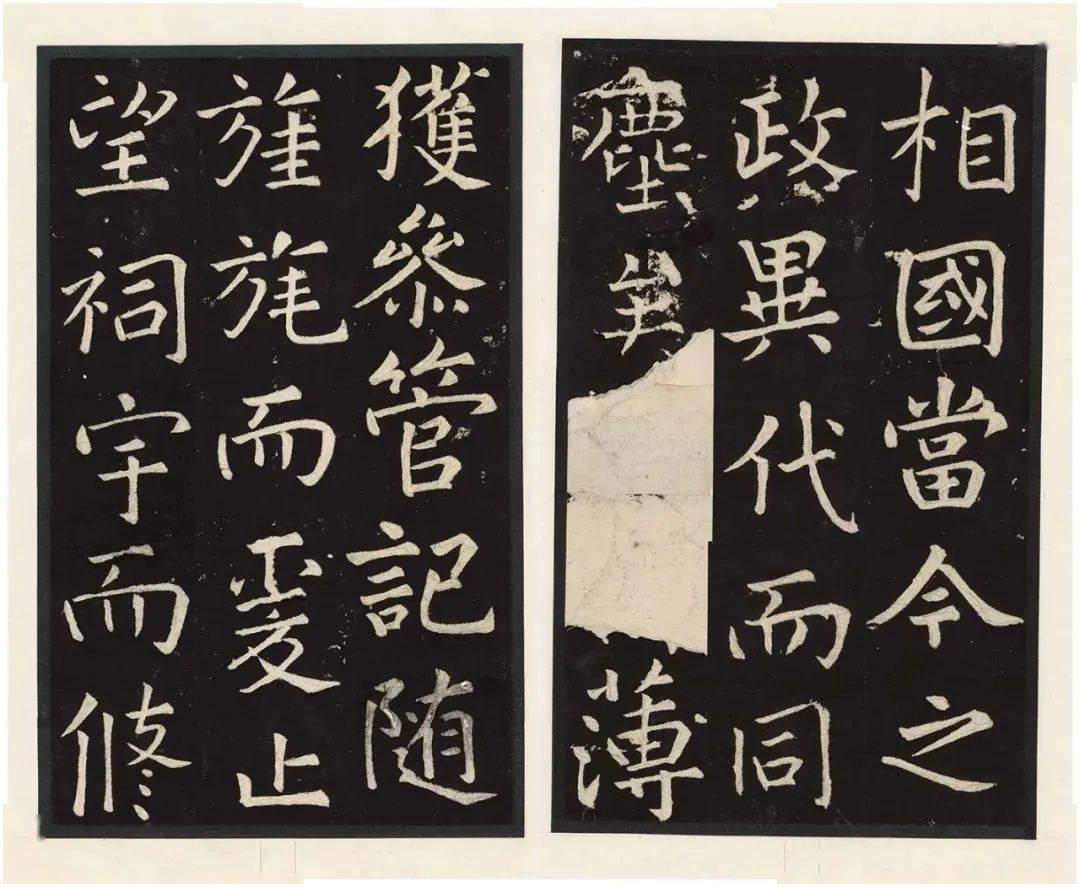 相國當今之
政異代而同
塵矣薄
獲參管記随
旌旄而爰止
望祠宇而修